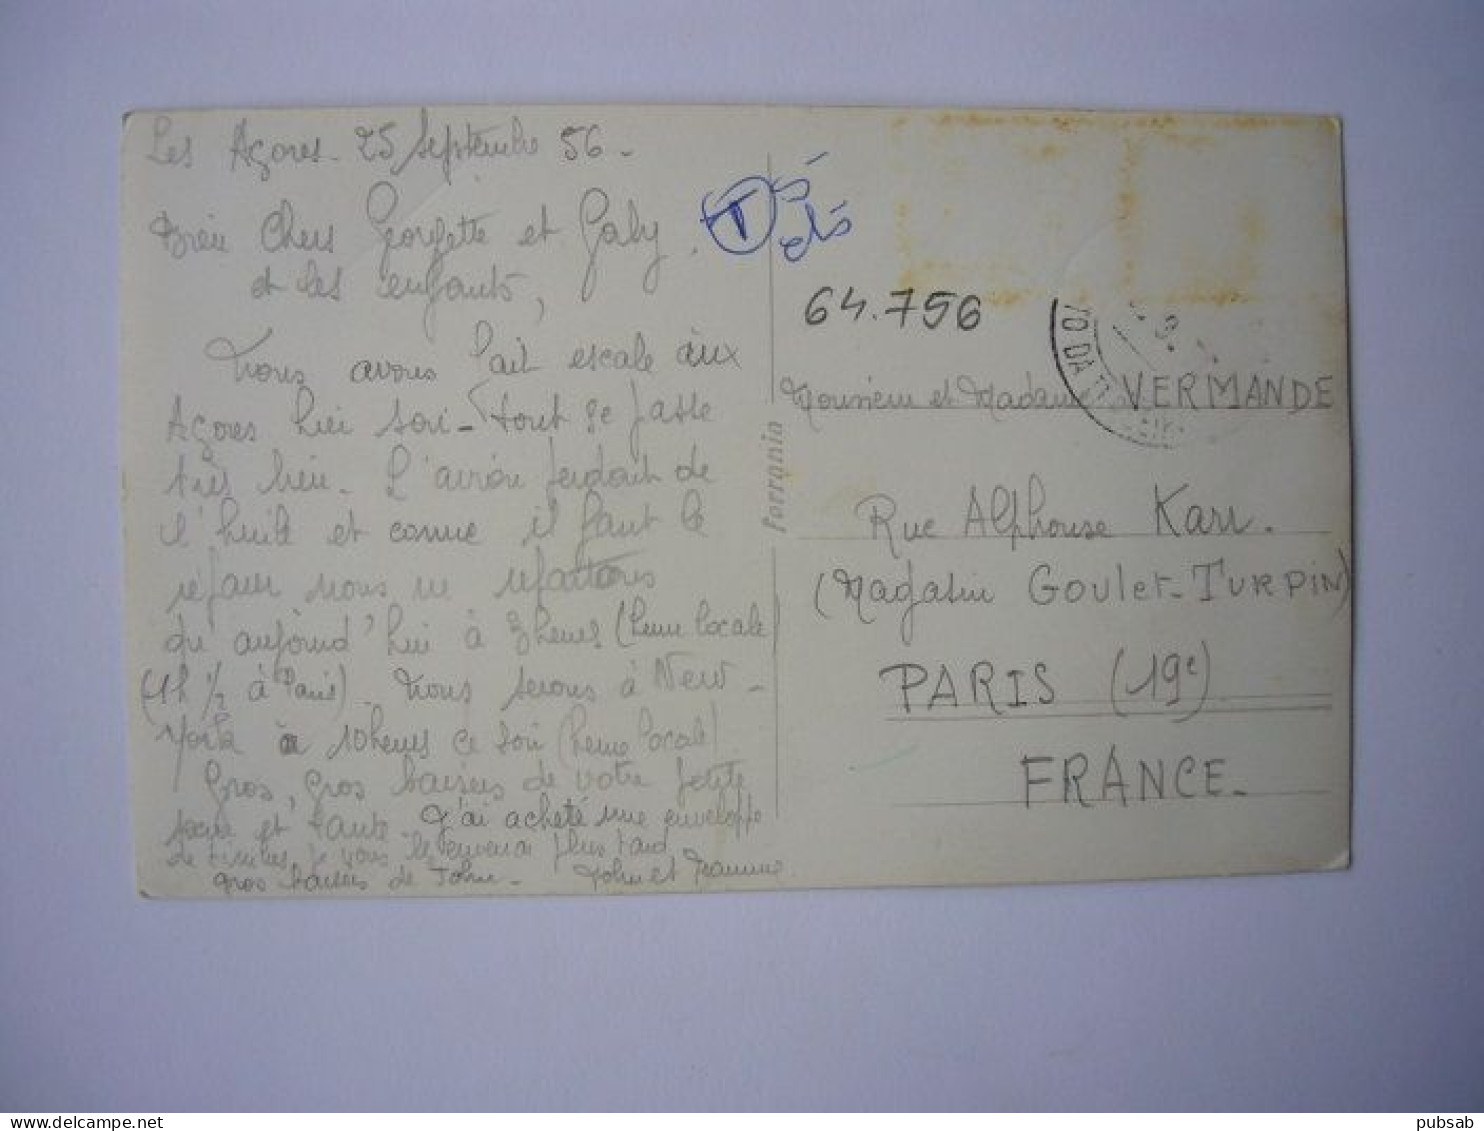 Les Açores. 25 Septembre 56.
Bien Chers Georgette et Gaby.
et les enfants,
Nous avons fait escale aux
Açores hier soir - tout se passe
très bien. L'avion perdait de
l'huile et comme il faut le
réparer nous ne repartons
qu'aujourd'hui à 3 heures (heure locale)
(4h 1/2 à Paris). Nous serons à New-
York à 10 heures ce soir (heure locale)
Gros, gros baisers de votre petite
soeur et tante. J'ai acheté une enveloppe
de timbres, je vous l'enverrai plus tard.
Gros baisers de John. John et Jeannine
T
cts
64.756
Ferrania
Monsieur et Madame VERMANDE
Rue Alphonse Karr.
(Magasin GOULET-TURPIN)
PARIS (19e)
FRANCE.
pubsab
delcampe.net